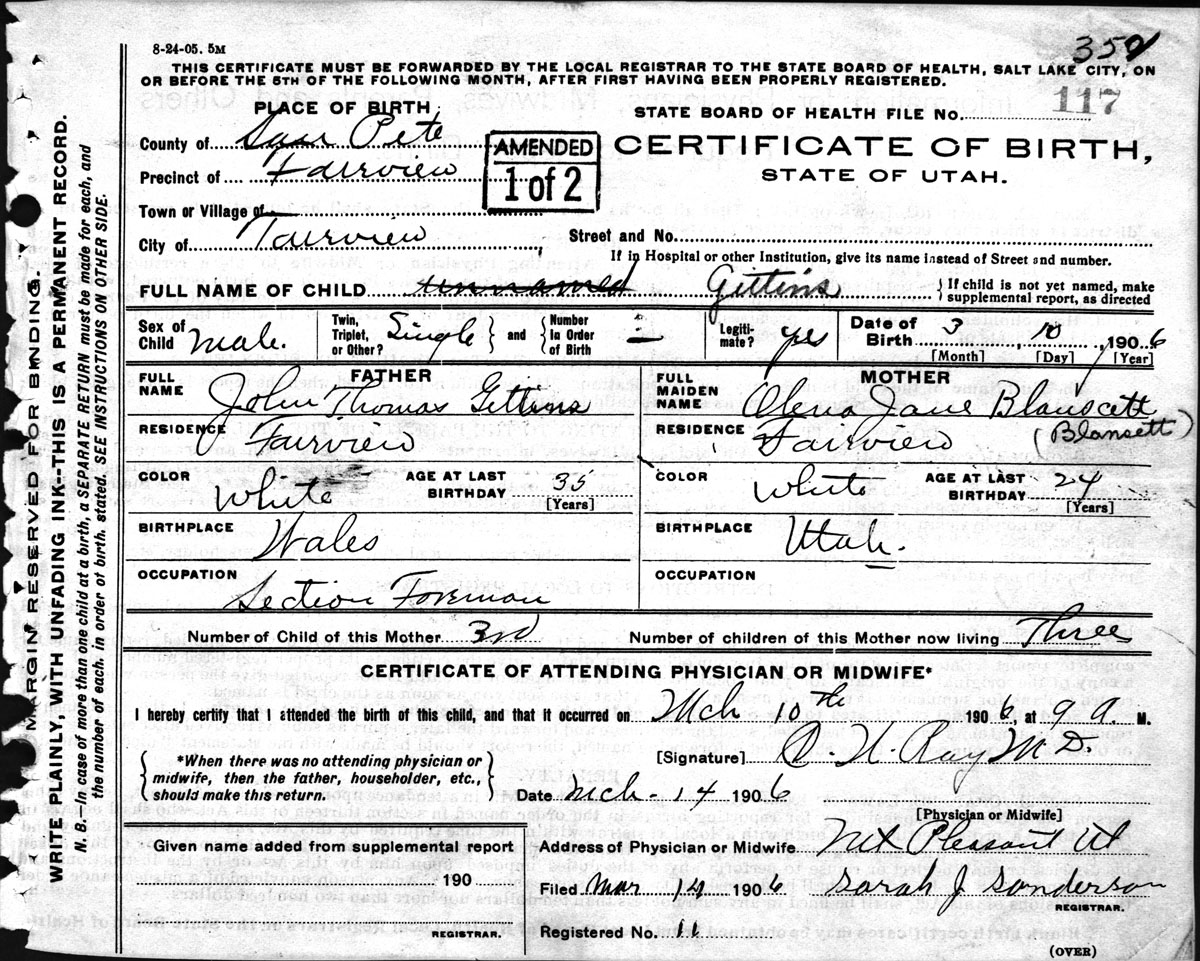 8-24-05. 5M
350
THIS CERTIFICATE MUST BE FORWARDED BY THE LOCAL REGISTRAR TO THE STATE BOARD OF HEALTH, SALT LAKE CITY, ON
OR BEFORE THE 5TH OF THE FOLLOWING MONTH, AFTER FIRST HAVING BEEN PROPERLY REGISTERED.
PLACE OF BIRTH
STATE BOARD OF HEALTH FILE No. 117
County of San Pete
AMENDED
1 of 2
CERTIFICATE OF BIRTH,
STATE OF UTAH.
Precinct of Fairview
Town or Village of
City of Fairview, Street and No.
If in Hospital or other Institution, give its name instead of Street and number.
FULL NAME OF CHILD unnamed Gittins { If child is not yet named, make supplemental report, as directed
Sex of Child Male. Twin, Triplet, or Other? Single } and { Number In Order of Birth Legitimate? yes Date of Birth 3, 10, 1906
[Month] [Day] [Year]
FATHER
FULL NAME John Thomas Gittins
RESIDENCE Fairview
COLOR White AGE AT LAST BIRTHDAY 35
[Years]
BIRTHPLACE Wales
OCCUPATION Section Foreman
MOTHER
FULL MAIDEN NAME Olena Jane Blanscett
RESIDENCE Fairview (Blansett)
COLOR White AGE AT LAST BIRTHDAY 24
[Years]
BIRTHPLACE Utah.
OCCUPATION
Number of Child of this Mother 3rd Number of children of this Mother now living Three
CERTIFICATE OF ATTENDING PHYSICIAN OR MIDWIFE*
I hereby certify that I attended the birth of this child, and that it occurred on Mch 10th 1906, at 9 A. M.
{ *When there was no attending physician or
midwife, then the father, householder, etc.,
should make this return. }
[Signature] Ray M D.
Date Mch - 14 1906
[Physician or Midwife]
Given name added from supplemental report
190
REGISTRAR.
Address of Physician or Midwife Mt Pleasant Ut
Filed Mar 14 1906 Sarah J Sanderson
REGISTRAR.
Registered No. 11
(OVER)
MARGIN RESERVED FOR BINDING.
WRITE PLAINLY, WITH UNFADING INK--THIS IS A PERMANENT RECORD.
N. B.—In case of more than one child at a birth, a SEPARATE RETURN must be made for each, and
the number of each, in order of birth, stated. SEE INSTRUCTIONS ON OTHER SIDE.